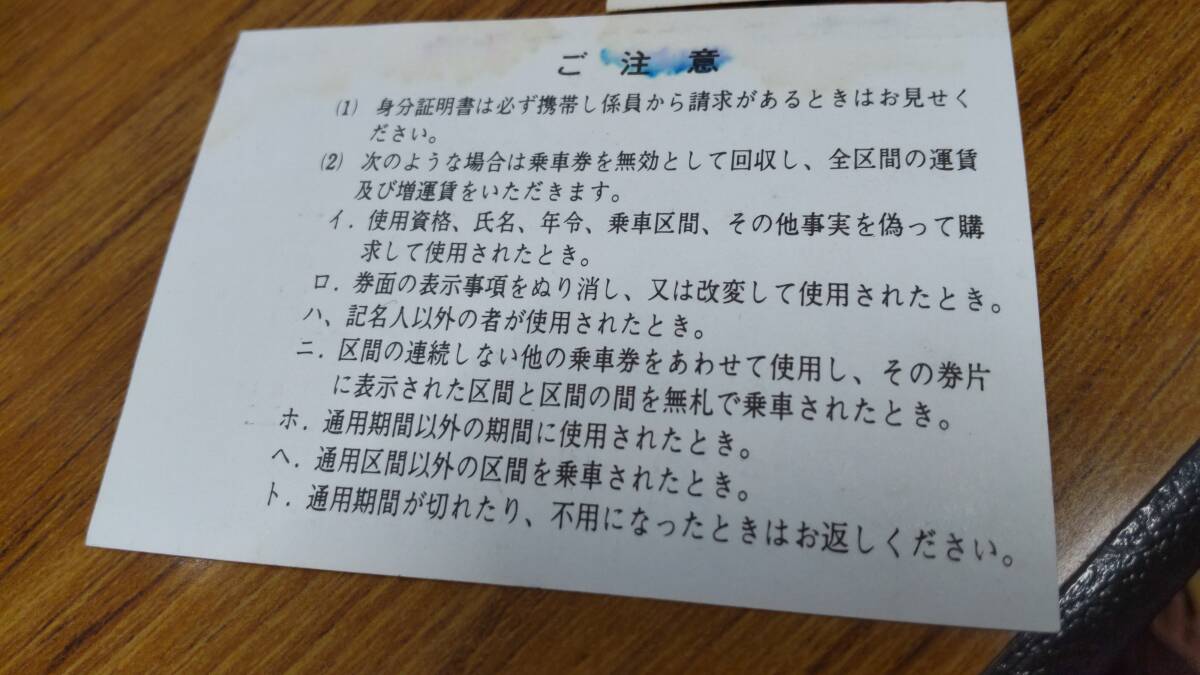 ご注意
(1) 身分証明書は必ず携帯し係員から請求があるときはお見せく
ださい。
(2) 次のような場合は乗車券を無効として回収し、全区間の運賃
及び増運賃をいただきます。
イ．使用資格、氏名、年令、乗車区間、その他事実を偽って購
求して使用されたとき。
ロ．券面の表示事項をぬり消し、又は改変して使用されたとき。
ハ、記名人以外の者が使用されたとき。
ニ．区間の連続しない他の乗車券をあわせて使用し、その券片
に表示された区間と区間の間を無札で乗車されたとき。
ホ．通用期間以外の期間に使用されたとき。
ヘ．通用区間以外の区間を乗車されたとき。
ト．通用期間が切れたり、不用になったときはお返しください。